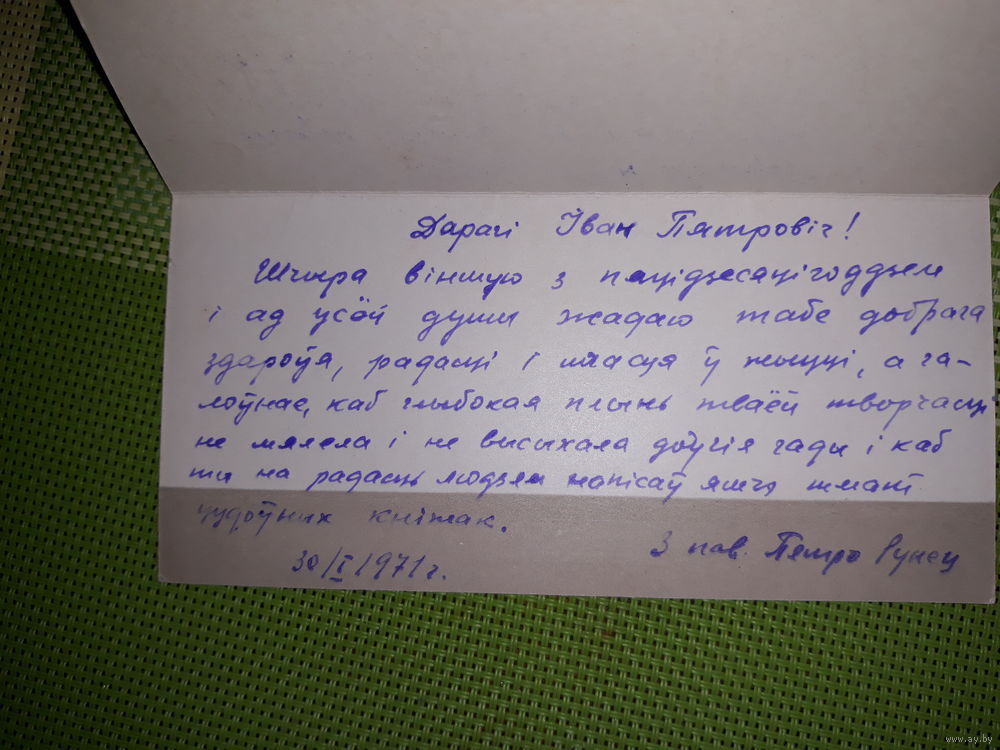 Дарагі Іван Пятровіч!
Шчыра віншую з пяцідзесяцігоддзем
і ад усёй душы жадаю табе добрага
здароўя, радасці і шчасця ў жыцці, а га-
лоўнае, каб глыбокая плынь тваёй творчасці
не мялела і не высыхала доўгія гады і каб
ты на радасць людзям напісаў яшчэ шмат
цудоўных кніжак.
З пав. Пятро Рунец
30/I 1971 г.
www.ay.by